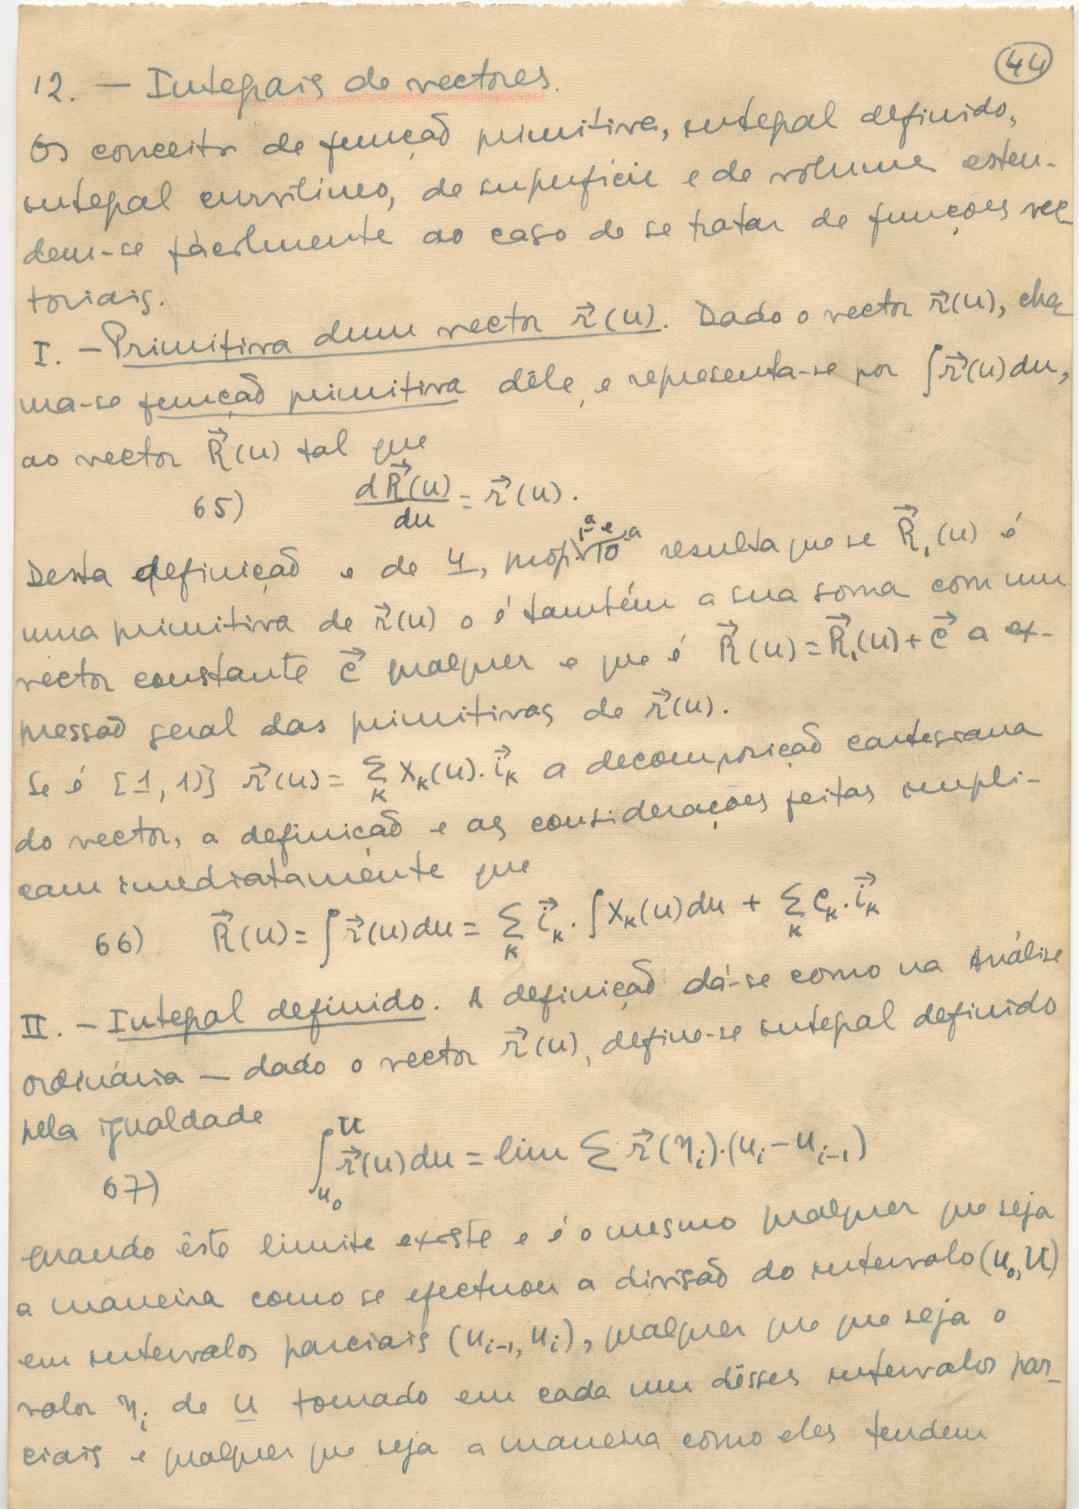 44
12. — Integrais de vectores.
Os conceitos de função primitiva, integral definido,
integral curvilíneo, de superfície e de volume esten-
dem-se fàcilmente ao caso de se tratar de funções vec
toriais.
I. — Primitiva dum vector r⃗(u). Dado o vector r⃗(u), cha
ma-se função primitiva dêle, e representa-se por ∫r⃗(u)du,
ao vector R⃗(u) tal que
65) dR⃗(u)/du = r⃗(u).
Desta definição e de 4, prop. 1ª e 10ª resulta que se R⃗₁(u) é
uma primitiva de r⃗(u) o é também a sua soma com um
vector constante c⃗ qualquer e que é R⃗(u)=R⃗₁(u)+c⃗ a ex-
pressão geral das primitivas de r⃗(u).
Se é [1, 1)] r⃗(u) = Σₖ Xₖ(u).i⃗ₖ a decomposição cartesiana
do vector, a definição e as considerações feitas impli-
cam imediatamente que
66) R⃗(u) = ∫r⃗(u)du = Σₖ i⃗ₖ.∫Xₖ(u)du + Σₖ cₖ.i⃗ₖ
II. — Integral definido. A definição dá-se como na Análise
ordinária — dado o vector r⃗(u), define-se integral definido
pela igualdade
67) ∫_{u₀}^{U} r⃗(u)du = lim Σ r⃗(ηᵢ).(uᵢ-uᵢ₋₁)
quando êste limite existe e é o mesmo qualquer que seja
a maneira como se efectuou a divisão do intervalo (u₀,U)
em intervalos parciais (uᵢ₋₁, uᵢ), qualquer que que seja o
valor ηᵢ de u tomado em cada um dêsses intervalos par_
ciais e qualquer que seja a maneira como eles tendem